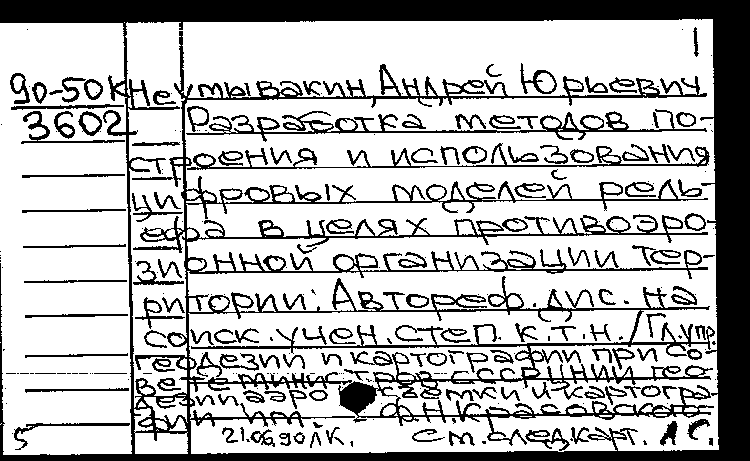 1
90-50К Неумывакин, Андрей Юрьевич
3602 Разработка методов по-
строения и использования
цифровых моделей рель-
ефа в целях противоэро-
зионной организации тер-
ритории: Автореф. дис. на
соиск. учен. степ. к.т.н. / Гл. упр.
геодезии и картографии при Со-
вете министров СССР, ЦНИИ гео-
дезии, аэро съемки и картогра-
фии им. Ф.Н. Красовского
5 21.06.90 ЛК. см. след. карт. АС.